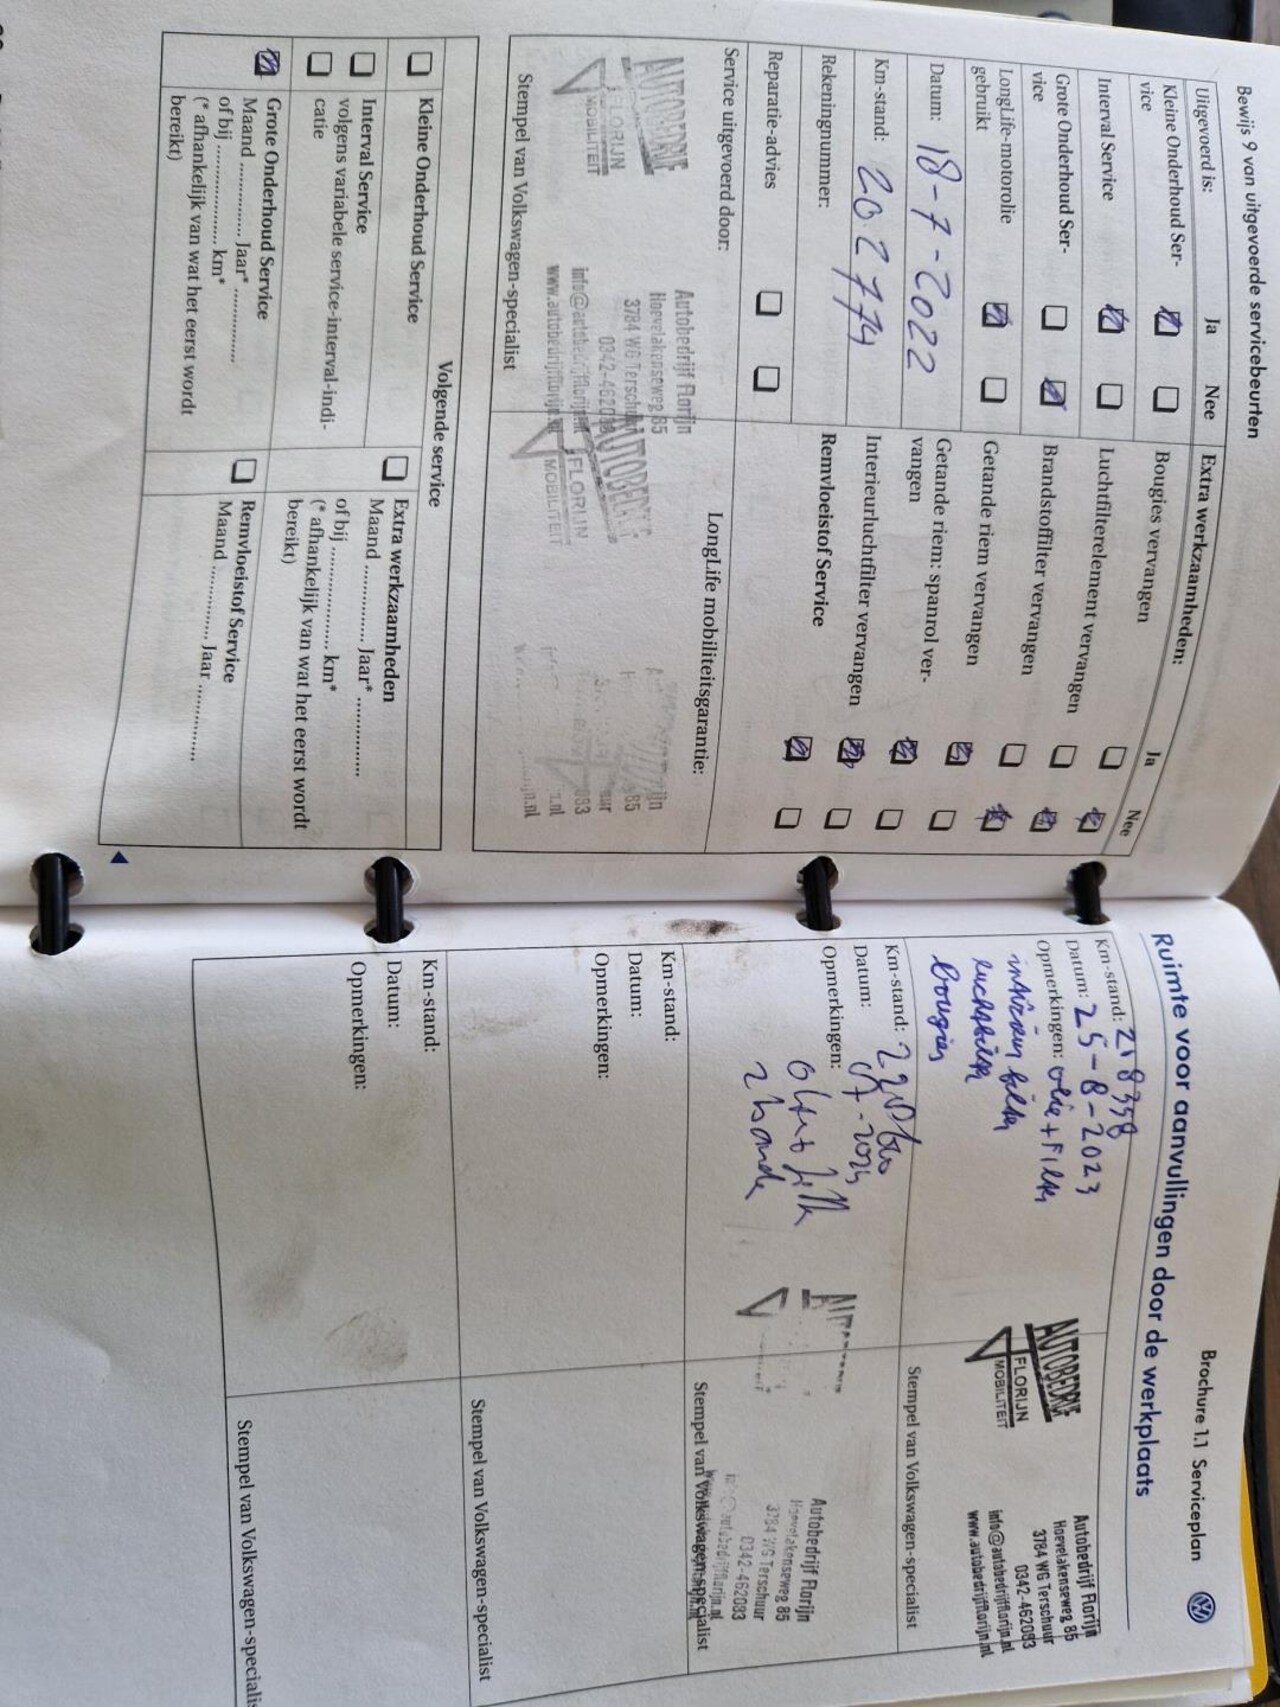 Bewijs 9 van uitgevoerde servicebeurten
Uitgevoerd is: Ja Nee
Kleine Onderhoud Ser-
vice
Interval Service
Grote Onderhoud Ser-
vice
LongLife-motorolie
gebruikt
Datum: 18-7-2022
Km-stand: 202774
Rekeningnummer:
Reparatie-advies
Service uitgevoerd door:
AUTOBEDRIJF
FLORIJN
MOBILITEIT
Autobedrijf Florijn
Hoevelakenseweg 85
3784 WG Terschuur
0342-462083
info@autobedrijfflorijn.nl
www.autobedrijfflorijn.nl
Stempel van Volkswagen-specialist
Extra werkzaamheden: Ja Nee
Bougies vervangen
Luchtfilterelement vervangen
Brandstoffilter vervangen
Getande riem vervangen
Getande riem: spanrol ver-
vangen
Interieurluchtfilter vervangen
Remvloeistof Service
LongLife mobiliteitsgarantie:
AUTOBEDRIJF
FLORIJN
MOBILITEIT
Volgende service
Kleine Onderhoud Service
Interval Service
volgens variabele service-interval-indi-
catie
Grote Onderhoud Service
Maand .............. Jaar* ..............
of bij .................... km*
(* afhankelijk van wat het eerst wordt
bereikt)
Extra werkzaamheden
Maand .............. Jaar* ..............
of bij .................... km*
(* afhankelijk van wat het eerst wordt
bereikt)
Remvloeistof Service
Maand .............. Jaar ..............
Brochure 1.1 Serviceplan
Ruimte voor aanvullingen door de werkplaats
Km-stand: 218358
Datum: 25-8-2023
Opmerkingen: olie + Filter
interieur filter
luchtfilter
bougies
AUTOBEDRIJF
FLORIJN
MOBILITEIT
Autobedrijf Florijn
Hoevelakenseweg 85
3784 WG Terschuur
0342-462083
info@autobedrijfflorijn.nl
www.autobedrijfflorijn.nl
Stempel van Volkswagen-specialist
Km-stand:
Datum:
Opmerkingen:
Autobedrijf Florijn
Hoevelakenseweg 85
3784 WG Terschuur
0342-462083
Stempel van Volkswagen-specialist
Km-stand:
Datum:
Opmerkingen:
Stempel van Volkswagen-specialist
Km-stand:
Datum:
Opmerkingen:
Stempel van Volkswagen-specialis